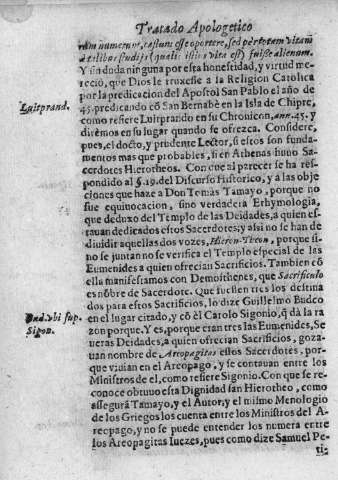 Tratado Apologetico
rum numerum, castum esse oportere, sed per totam vitam
à talibus studijs (qualis istius vita est) fuisse alienum.
Y sin duda ninguna por esta honestidad, y virtud me-
reciò, que Dios le truxesse a la Religion Catolica
por la predicacion del Apostol San Pablo el año de
Luitprand.
45. predicando cō San Bernabè en la Isla de Chipre,
como refiere Luitprando en su Chronicon, ann. 45. y
diremos en su lugar quando se ofrezca. Considere,
pues, el docto, y prudente Lector, si estos son funda-
mentos mas que probables, si en Athenas huuo Sa-
cerdotes Hierotheos. Con que al parecer se ha res-
pondido al §.19. del Discurso Historico, y a las obje-
ciones que haze a Don Tomàs Tamayo, porque no
fue equiuocacion, sino verdadera Ethymologia,
que deduxo del Templo de las Deidades, a quien es-
tauan dedicados estos Sacerdotes; y assi no se han de
diuidir aquellas dos vozes, Hieron-Theon, porque si-
no se juntan no se verifica el Templo especial de las
Eumenides a quien ofrecian Sacrificios. Tambien cō
ella manifestamos con Demosthenes, que Sacrificulo
es nōbre de Sacerdote. Que fuessen tres los destina
dos para estos Sacrificios, lo dize Guillelmo Budeo
en el lugar citado, y cō èl Carolo Sigonio, q̄ dà la ra
Sigon.
zon porque. Y es, porque eran tres las Eumenides, Se
ueras Deidades, a quien ofrecian Sacrificios, goza-
uan nombre de Areopagitas estos Sacerdotes, por-
que viuian en el Areopago, y se contauan entre los
Ministros de el, como refiere Sigonio. Con que se re-
conoce obtuuo esta Dignidad san Hierotheo, como
assegura Tamayo, y el Autor, y el mismo Menologio
de los Griegos los cuenta entre los Ministros del A-
reopago, y no se puede entender los numera entre
los Areopagitas Iuezes, pues como dize Samuel Pe-
ti-